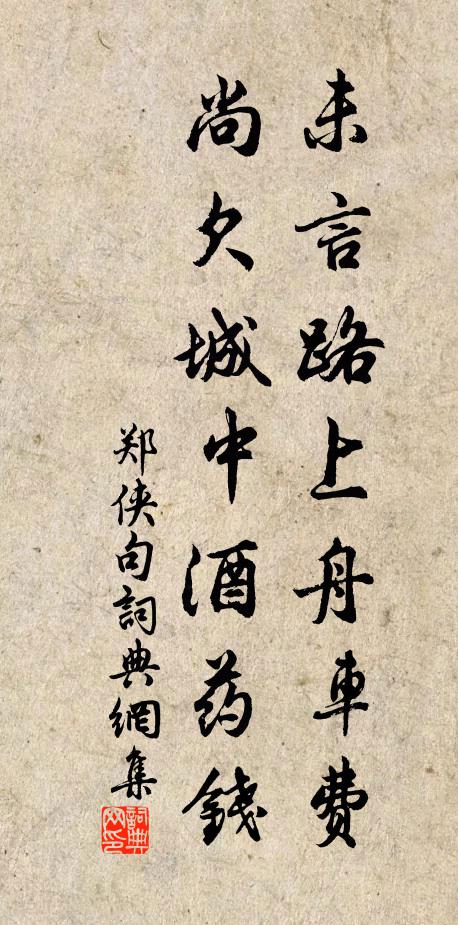 未言路上舟車費
尚欠城中酒药錢
郑侠句詞典網集
詞典网印